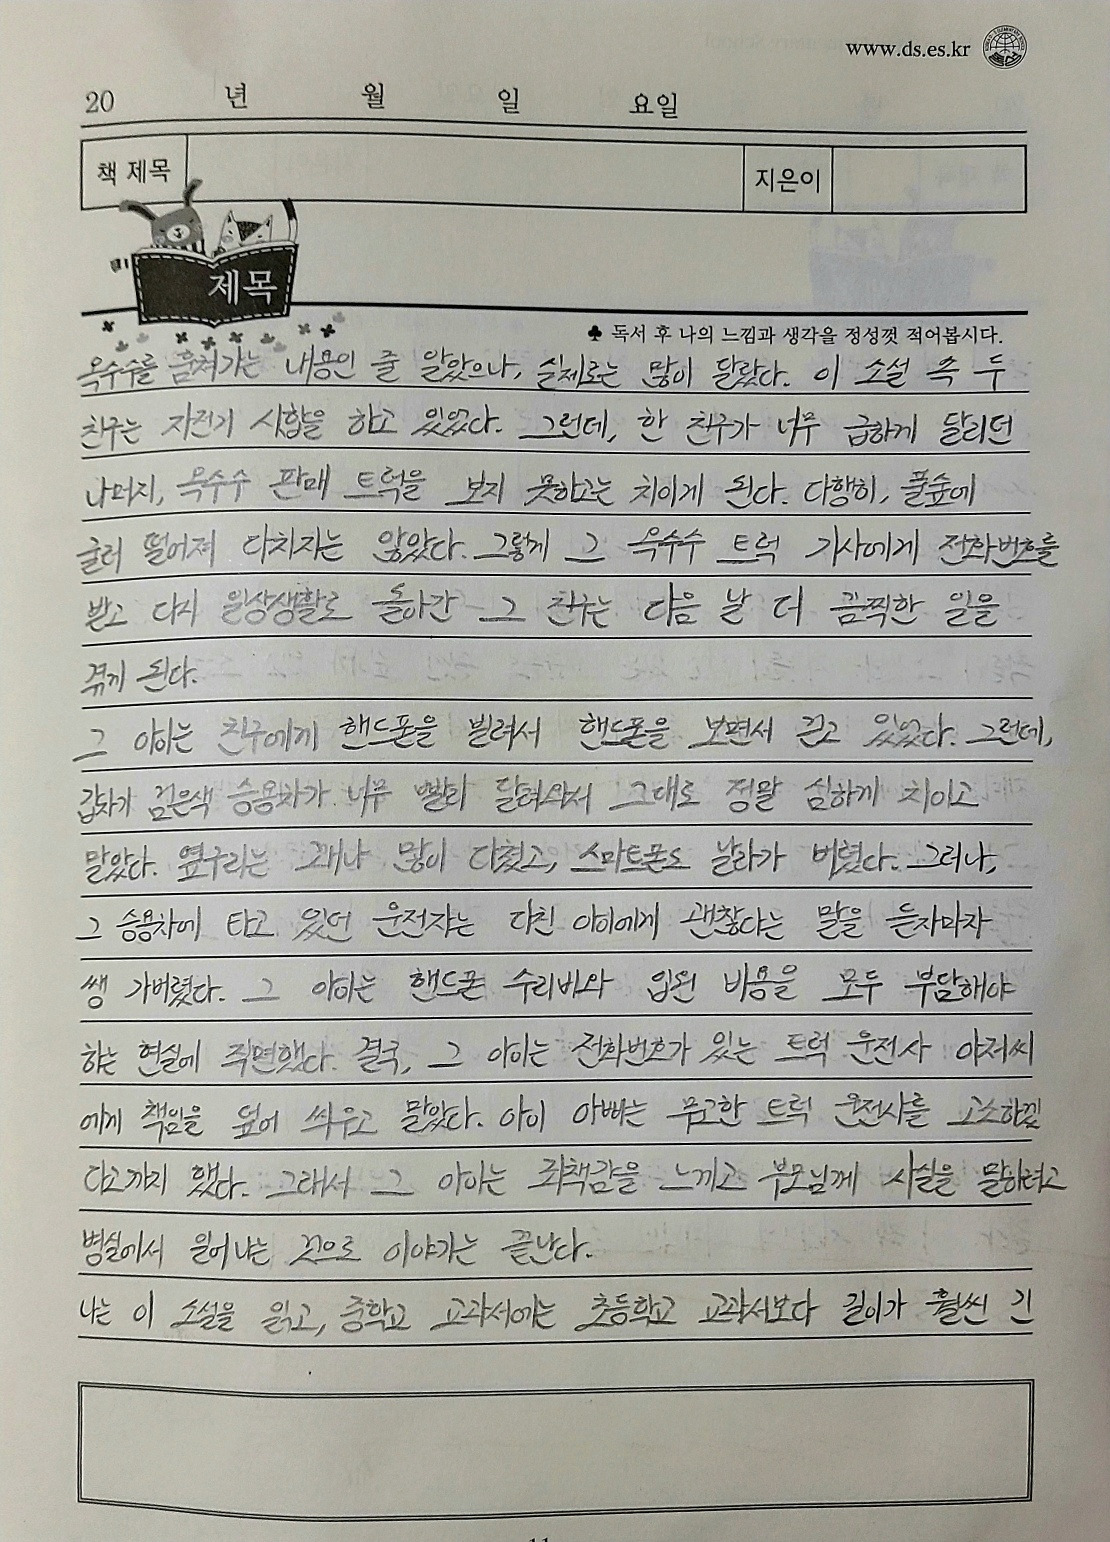 www.ds.es.kr
20 년 월 일 요일
책 제목 지은이
제목
♣ 독서 후 나의 느낌과 생각을 정성껏 적어봅시다.
옥수수를 훔쳐가는 내용인 줄 알았으나, 실제로는 많이 달랐다. 이 소설 속 두
친구는 자전거 시합을 하고 있었다. 그런데, 한 친구가 너무 급하게 달리던
나머지, 옥수수 판매 트럭을 보지 못하고는 치이게 된다. 다행히, 풀숲에
굴러 떨어져 다치지는 않았다. 그렇게 그 옥수수 트럭 기사에게 전화번호를
받고 다시 일상생활로 돌아간 그 친구는 다음 날 더 끔찍한 일을
겪게 된다.
그 아이는 친구에게 핸드폰을 빌려서 핸드폰을 보면서 걷고 있었다. 그런데,
갑자기 검은색 승용차가 너무 빨리 달려와서 그대로 정말 심하게 치이고
말았다. 옆구리는 꽤나 많이 다쳤고, 스마트폰도 날라가 버렸다. 그러나,
그 승용차에 타고 있던 운전자는 다친 아이에게 괜찮다는 말을 듣자마자
쌩 가버렸다. 그 아이는 핸드폰 수리비와 입원 비용을 모두 부담해야
하는 현실에 직면했다. 결국, 그 아이는 전화번호가 있는 트럭 운전사 아저씨
에게 책임을 덮어 씌우고 말았다. 아이 아빠는 무고한 트럭 운전사를 고소하겠
다고까지 했다. 그래서 그 아이는 죄책감을 느끼고 부모님께 사실을 말하려고
병실에서 일어나는 것으로 이야기는 끝난다.
나는 이 소설을 읽고, 중학교 교과서에는 초등학교 교과서보다 길이가 훨씬 긴